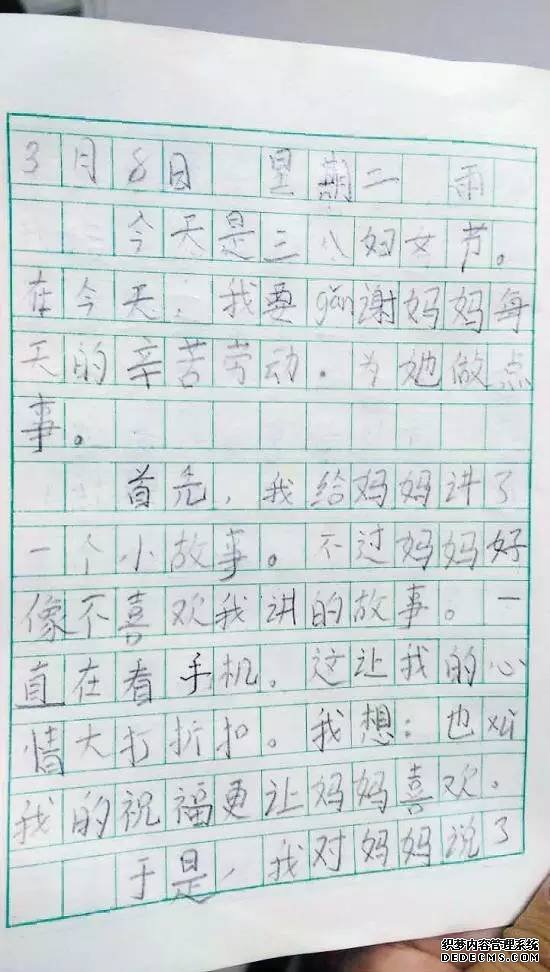 3月8日 星期二 雨
今天是三八妇女节。
在今天，我要gǎn谢妈妈每
天的辛苦劳动.为她做点
事。
首先，我给妈妈讲了
一个小故事。不过妈妈好
像不喜欢我讲的故事。一
直在看手机。这让我的心
情大打折扣。我想：也xǔ
我的祝福更让妈妈喜欢。
于是，我对妈妈说了
织梦内容管理系统
DEDECMS.COM